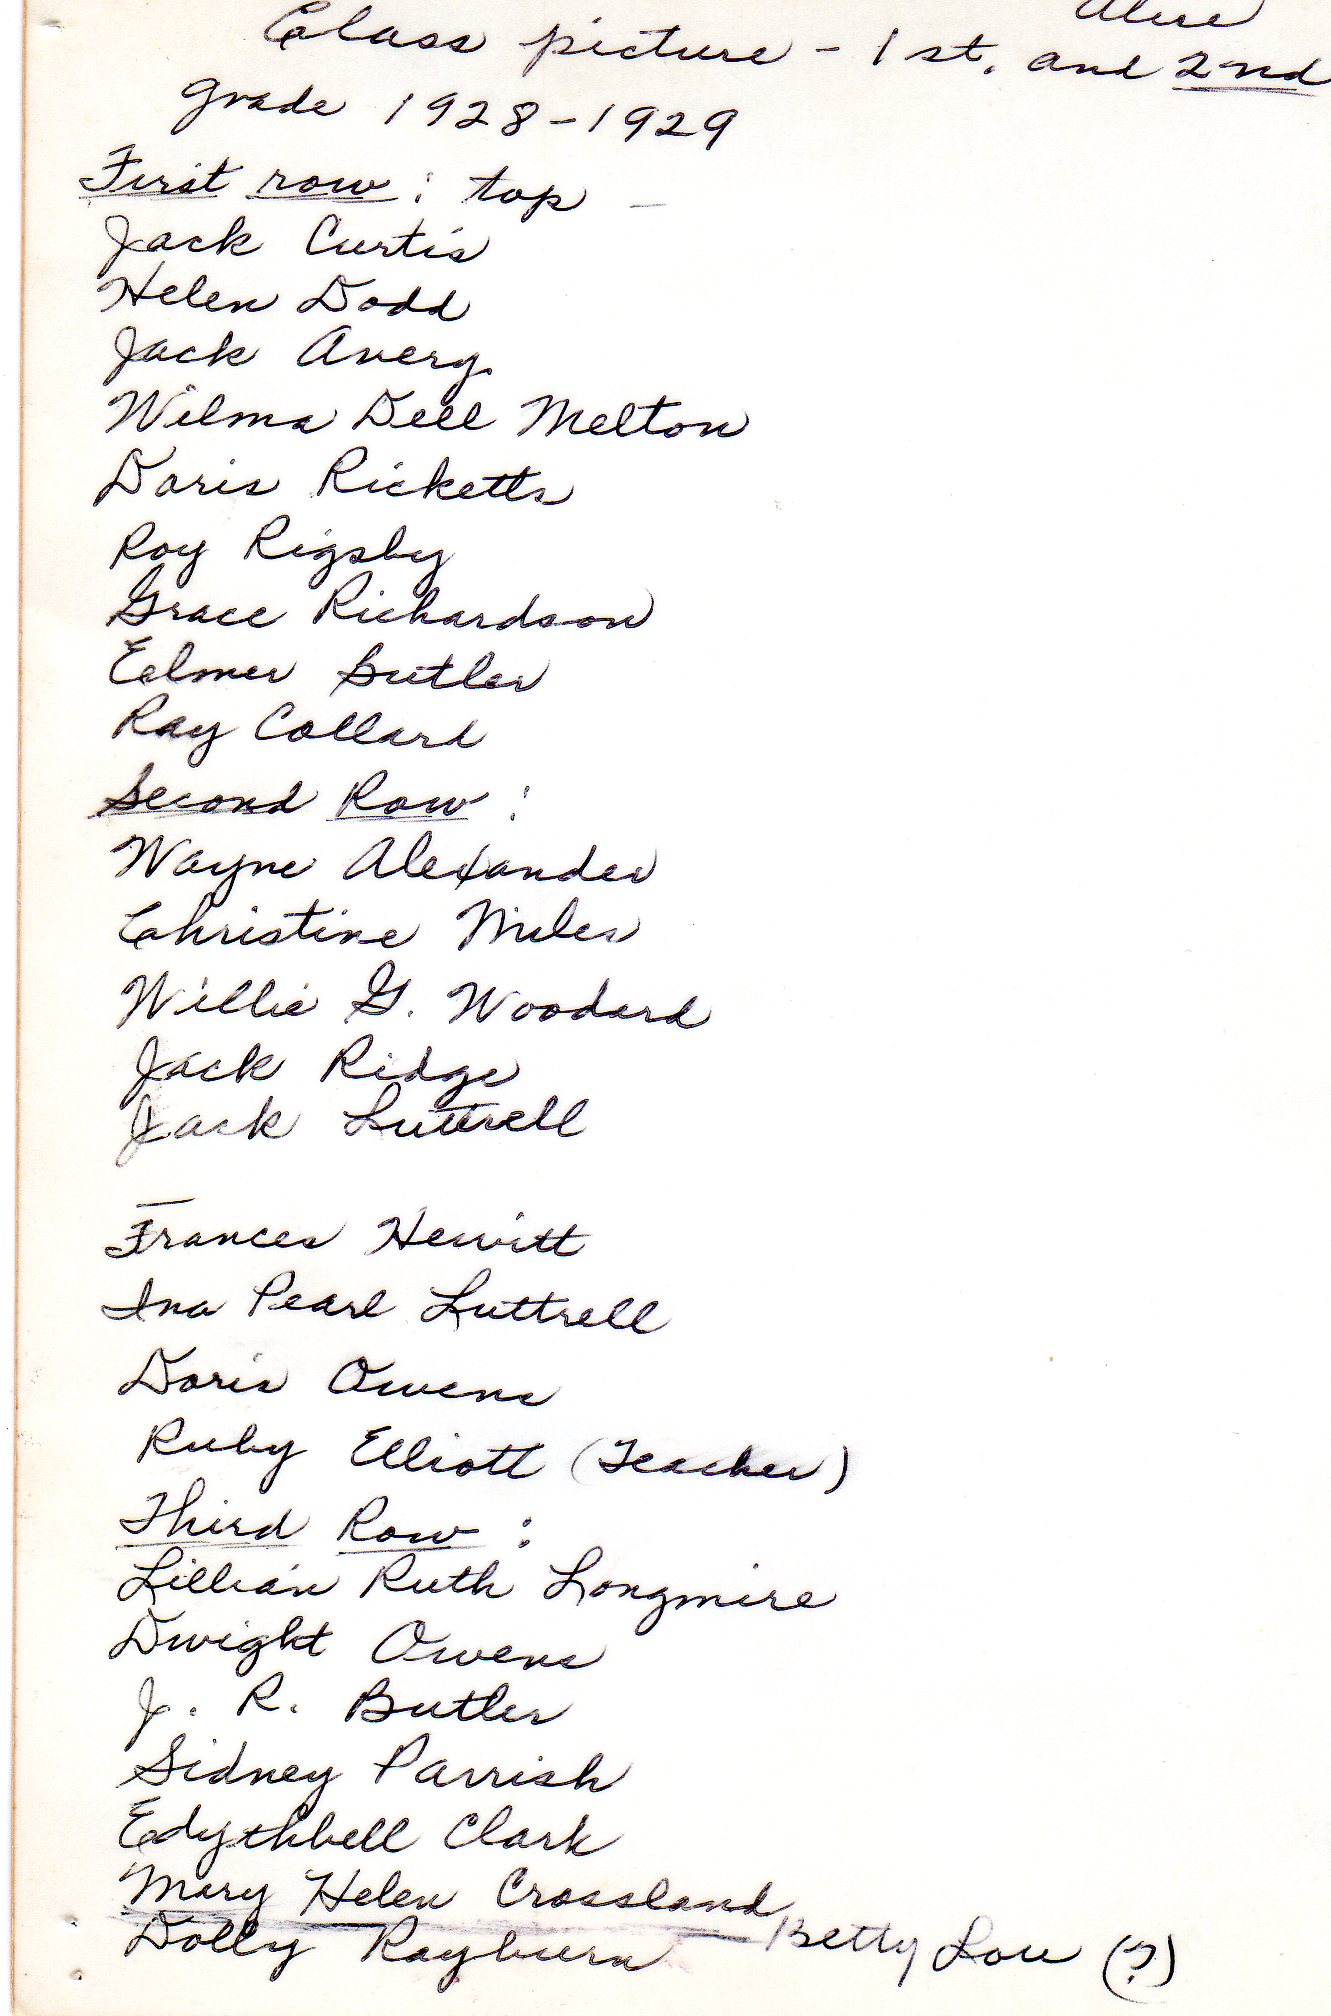 Class picture - 1st. and 2nd
grade 1928-1929
First row: top -
Jack Curtis
Helen Dodd
Jack Avery
Wilma Dell Melton
Doris Ricketts
Roy Rigsby
Grace Richardson
Eelmer Butler
Ray Collard
Second Row:
Wayne Alexander
Christine Miles
Willie G. Woodard
Jack Ridge
Jack Luttrell
Frances Hewitt
Ina Pearl Luttrell
Doris Owens
Ruby Elliott (Teacher)
Third Row:
Lillian Ruth Longmire
Dwight Owens
J. R. Butler
Sidney Parrish
Edythbell Clark
Mary Helen Crossland
Dolly Rayburn - Betty Lou (?)